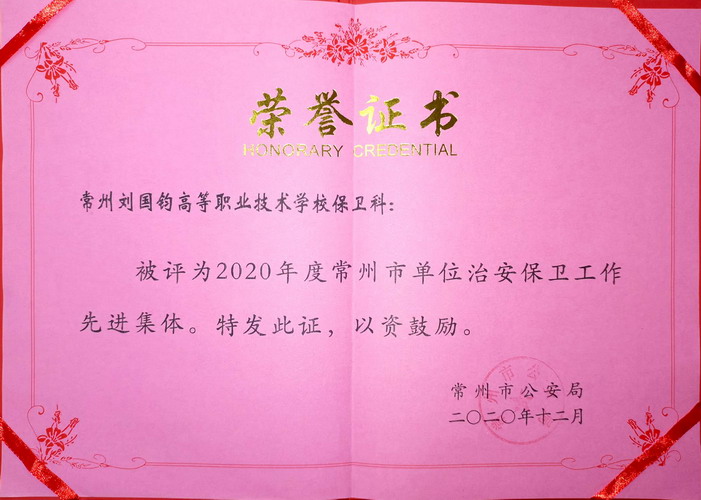 荣誉证书
HONORARY CREDENTIAL
常州刘国钧高等职业技术学校保卫科：
被评为2020年度常州市单位治安保卫工作
先进集体。特发此证，以资鼓励。
常州市公安局
二〇二〇年十二月